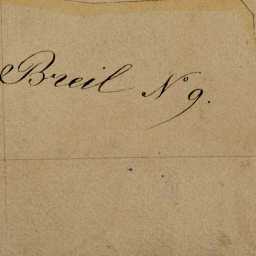 Breil Nº 9.